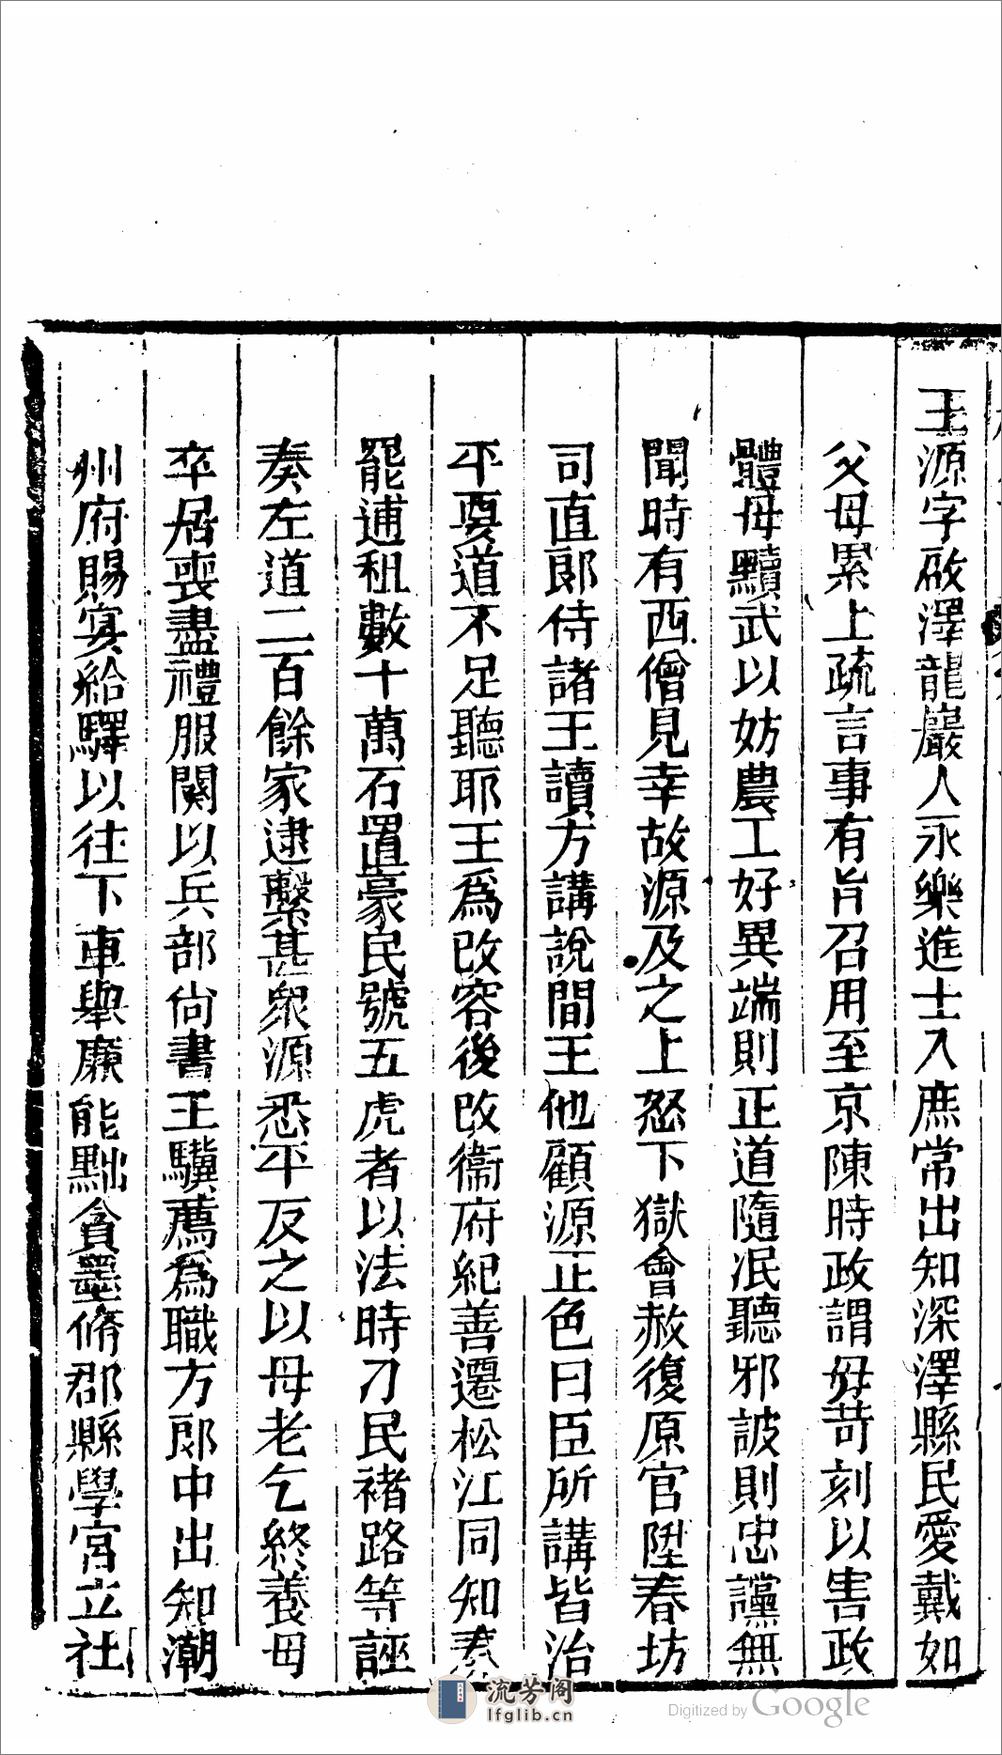 王源字啟澤龍巖人永樂進士入庶常出知深澤縣民愛戴如
父母累上疏言事有旨召用至京陳時政謂毋苛刻以害政
體毋黷武以妨農工好異端則正道隳泯聽邪詖則忠讜無
聞時有西僧見幸故源及之上怒下獄會赦復原官陞春坊
司直郎侍諸王讀方講說間王他顧源正色曰臣所講皆治
平要道不足聽耶王為改容後改衞府紀善遷松江同知奏
罷逋租數十萬石置豪民號五虎者以法時刁民褚路等誣
奏左道二百餘家逮繫甚衆源悉平反之以母老乞終養母
卒居喪盡禮服闋以兵部尙書王驥薦為職方郎中出知潮
州府賜宴給驛以往下車舉廉能黜貪墨脩郡縣學宮立社
流芳阁
lfglib.cn
Digitized by Google